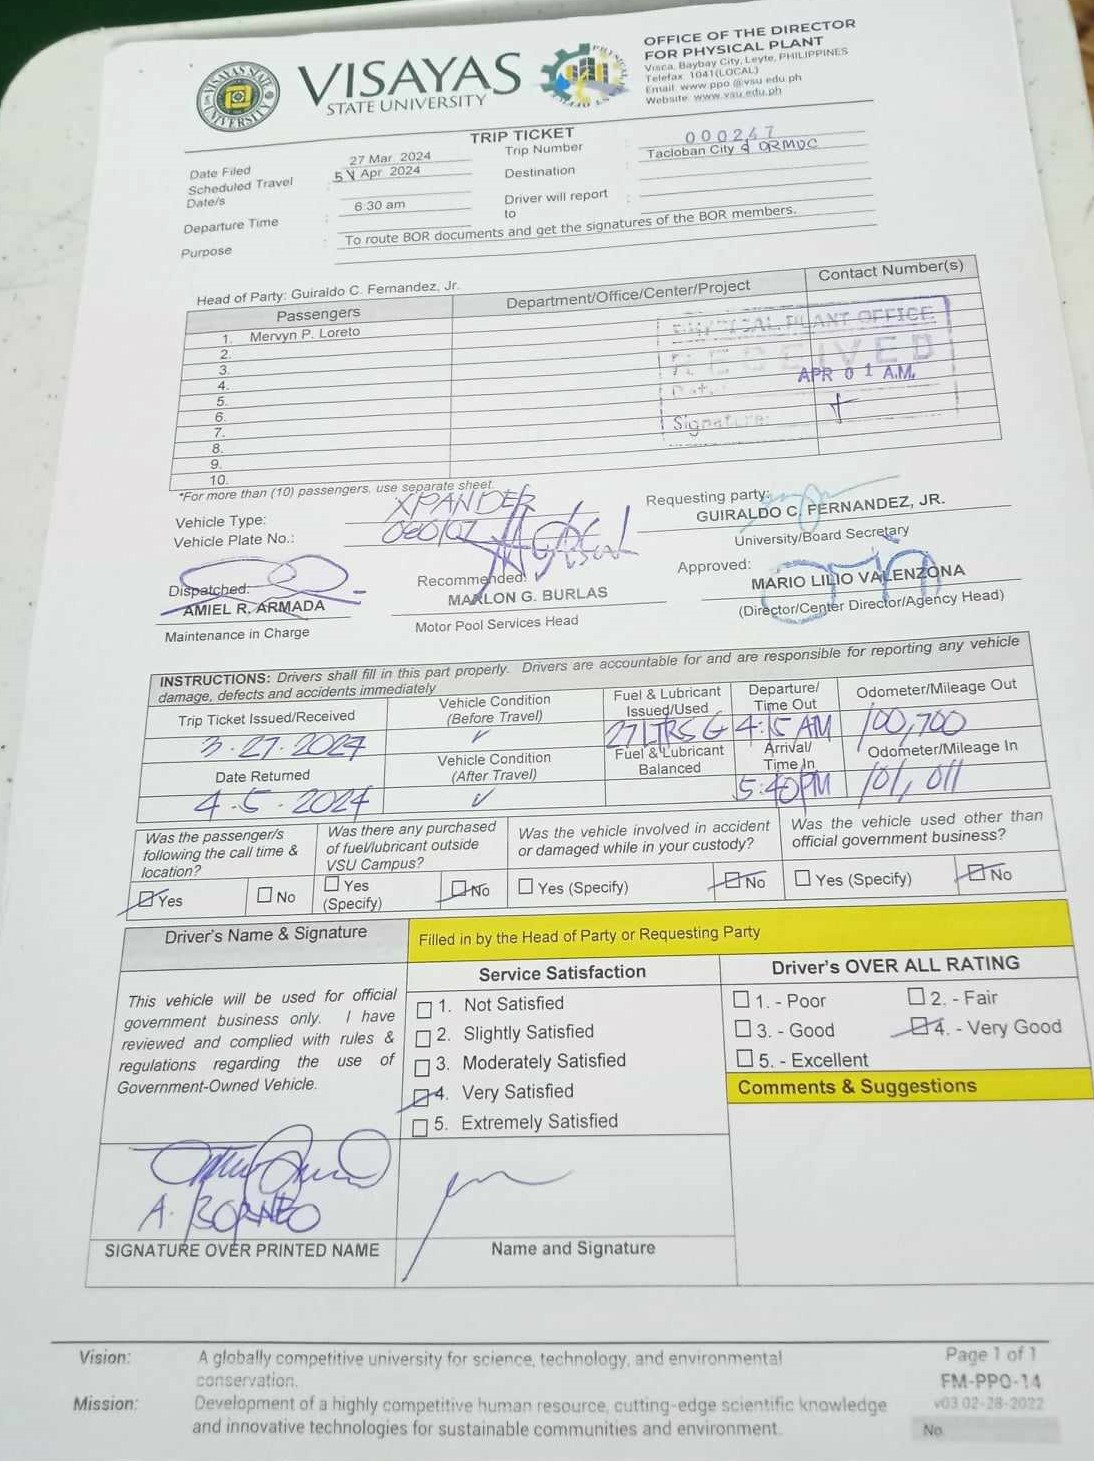 OFFICE OF THE DIRECTOR
FOR PHYSICAL PLANT
Visca, Baybay City, Leyte, PHILIPPINES
Telefax: 1041(LOCAL)
Email: www.ppo@vsu.edu.ph
Website: www.vsu.edu.ph
VISAYAS
STATE UNIVERSITY
TRIP TICKET
Date Filed : 27 Mar. 2024 Trip Number : 000247
Scheduled Travel Date/s : 5 Apr 2024 Destination : Tacloban City & ORMOC
Departure Time : 6:30 am Driver will report to :
Purpose : To route BOR documents and get the signatures of the BOR members.
Head of Party: Guiraldo C. Fernandez, Jr.
Passengers Department/Office/Center/Project Contact Number(s)
1. Mervyn P. Loreto
2.
3.
4.
5.
6.
7.
8.
9.
10.
PHYSICAL PLANT OFFICE
RECEIVED
APR 01 A.M.
Signature:
*For more than (10) passengers, use separate sheet.
Vehicle Type: XPANDER
Vehicle Plate No.:
Requesting party:
GUIRALDO C. FERNANDEZ, JR.
University/Board Secretary
Dispatched:
AMIEL R. ARMADA
Maintenance in Charge
Recommended:
MARLON G. BURLAS
Motor Pool Services Head
Approved:
MARIO LILIO VALENZONA
(Director/Center Director/Agency Head)
INSTRUCTIONS: Drivers shall fill in this part properly. Drivers are accountable for and are responsible for reporting any vehicle
damage, defects and accidents immediately
Trip Ticket Issued/Received Vehicle Condition (Before Travel) Fuel & Lubricant Issued/Used Departure/ Time Out Odometer/Mileage Out
3-27-2024 ✓ 27 LTRS G 4:15 AM 100,700
Date Returned Vehicle Condition (After Travel) Fuel & Lubricant Balanced Arrival/ Time In Odometer/Mileage In
4-5-2024 ✓ 5:40PM 101,011
Was the passenger/s following the call time & location?
Was there any purchased of fuel/lubricant outside VSU Campus?
Was the vehicle involved in accident or damaged while in your custody?
Was the vehicle used other than official government business?
Yes No Yes (Specify) No Yes (Specify) No Yes (Specify) No
Driver's Name & Signature
Filled in by the Head of Party or Requesting Party
This vehicle will be used for official
government business only. I have
reviewed and complied with rules &
regulations regarding the use of
Government-Owned Vehicle.
Service Satisfaction
1. Not Satisfied
2. Slightly Satisfied
3. Moderately Satisfied
4. Very Satisfied
5. Extremely Satisfied
Driver's OVER ALL RATING
1. - Poor 2. - Fair
3. - Good 4. - Very Good
5. - Excellent
Comments & Suggestions
A. BORNEO
SIGNATURE OVER PRINTED NAME
Name and Signature
Vision: A globally competitive university for science, technology, and environmental
conservation.
Mission: Development of a highly competitive human resource, cutting-edge scientific knowledge
and innovative technologies for sustainable communities and environment.
Page 1 of 1
FM-PPO-14
v03 02-28-2022
No